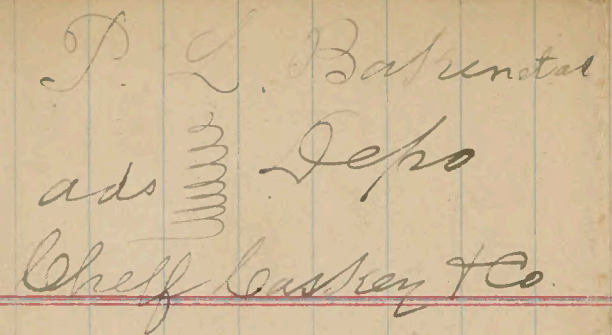 P. L. Bahenetal
ads Depo
Cheff Caskey & Co.